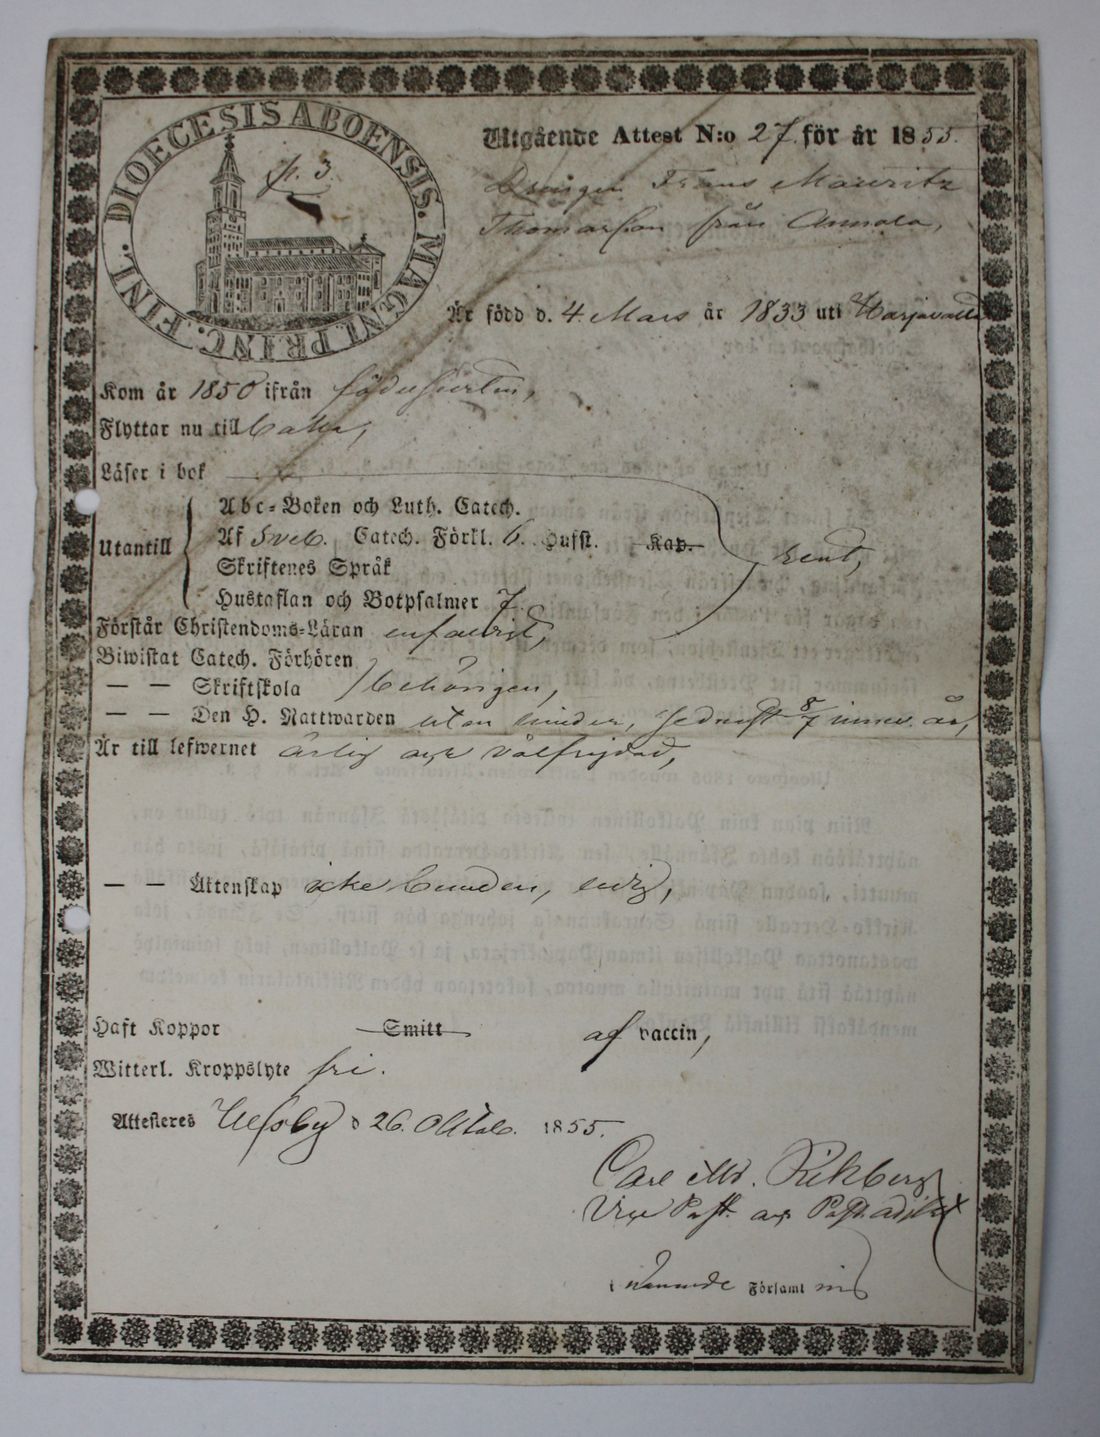 DIOECESIS ABOENSIS. MAGNI. PRINC. FINL.
p. 3.
Utgående Attest N:o 27. för år 1855.
Drengen Frans Mauritz
Thomasson från Annola,
Är född d. 4. Mars år 1833 uti Harjavalta
Kom år 1850 ifrån födelseorten,
Flyttar nu till
Läser i bok
Abc-Boken och Luth. Catech.
Utantill Af Sveb. Catech. Förkl. 6. Husst. Kap. rent,
Skriftenes Språk
Hustaflan och Botpsalmer 7.
Förstår Christendoms-Läran enfaldigt,
Biwistat Catech. Förhören
— — Skriftskola behörigen,
— — Den H. Nattwarden utan hinder, sednast 8/7 innev. år,
Är till lefwernet ärlig och välfrejdad,
— — Äktenskap icke bunden, ledig,
Haft Koppor Smitt af vaccin,
Witterl. Kroppslyte fri.
Attesteres Ulfsby d 26. Oktob. 1855.
Carl Md. Rikberg
Vice Past. och Past. adjunkt
i Församl